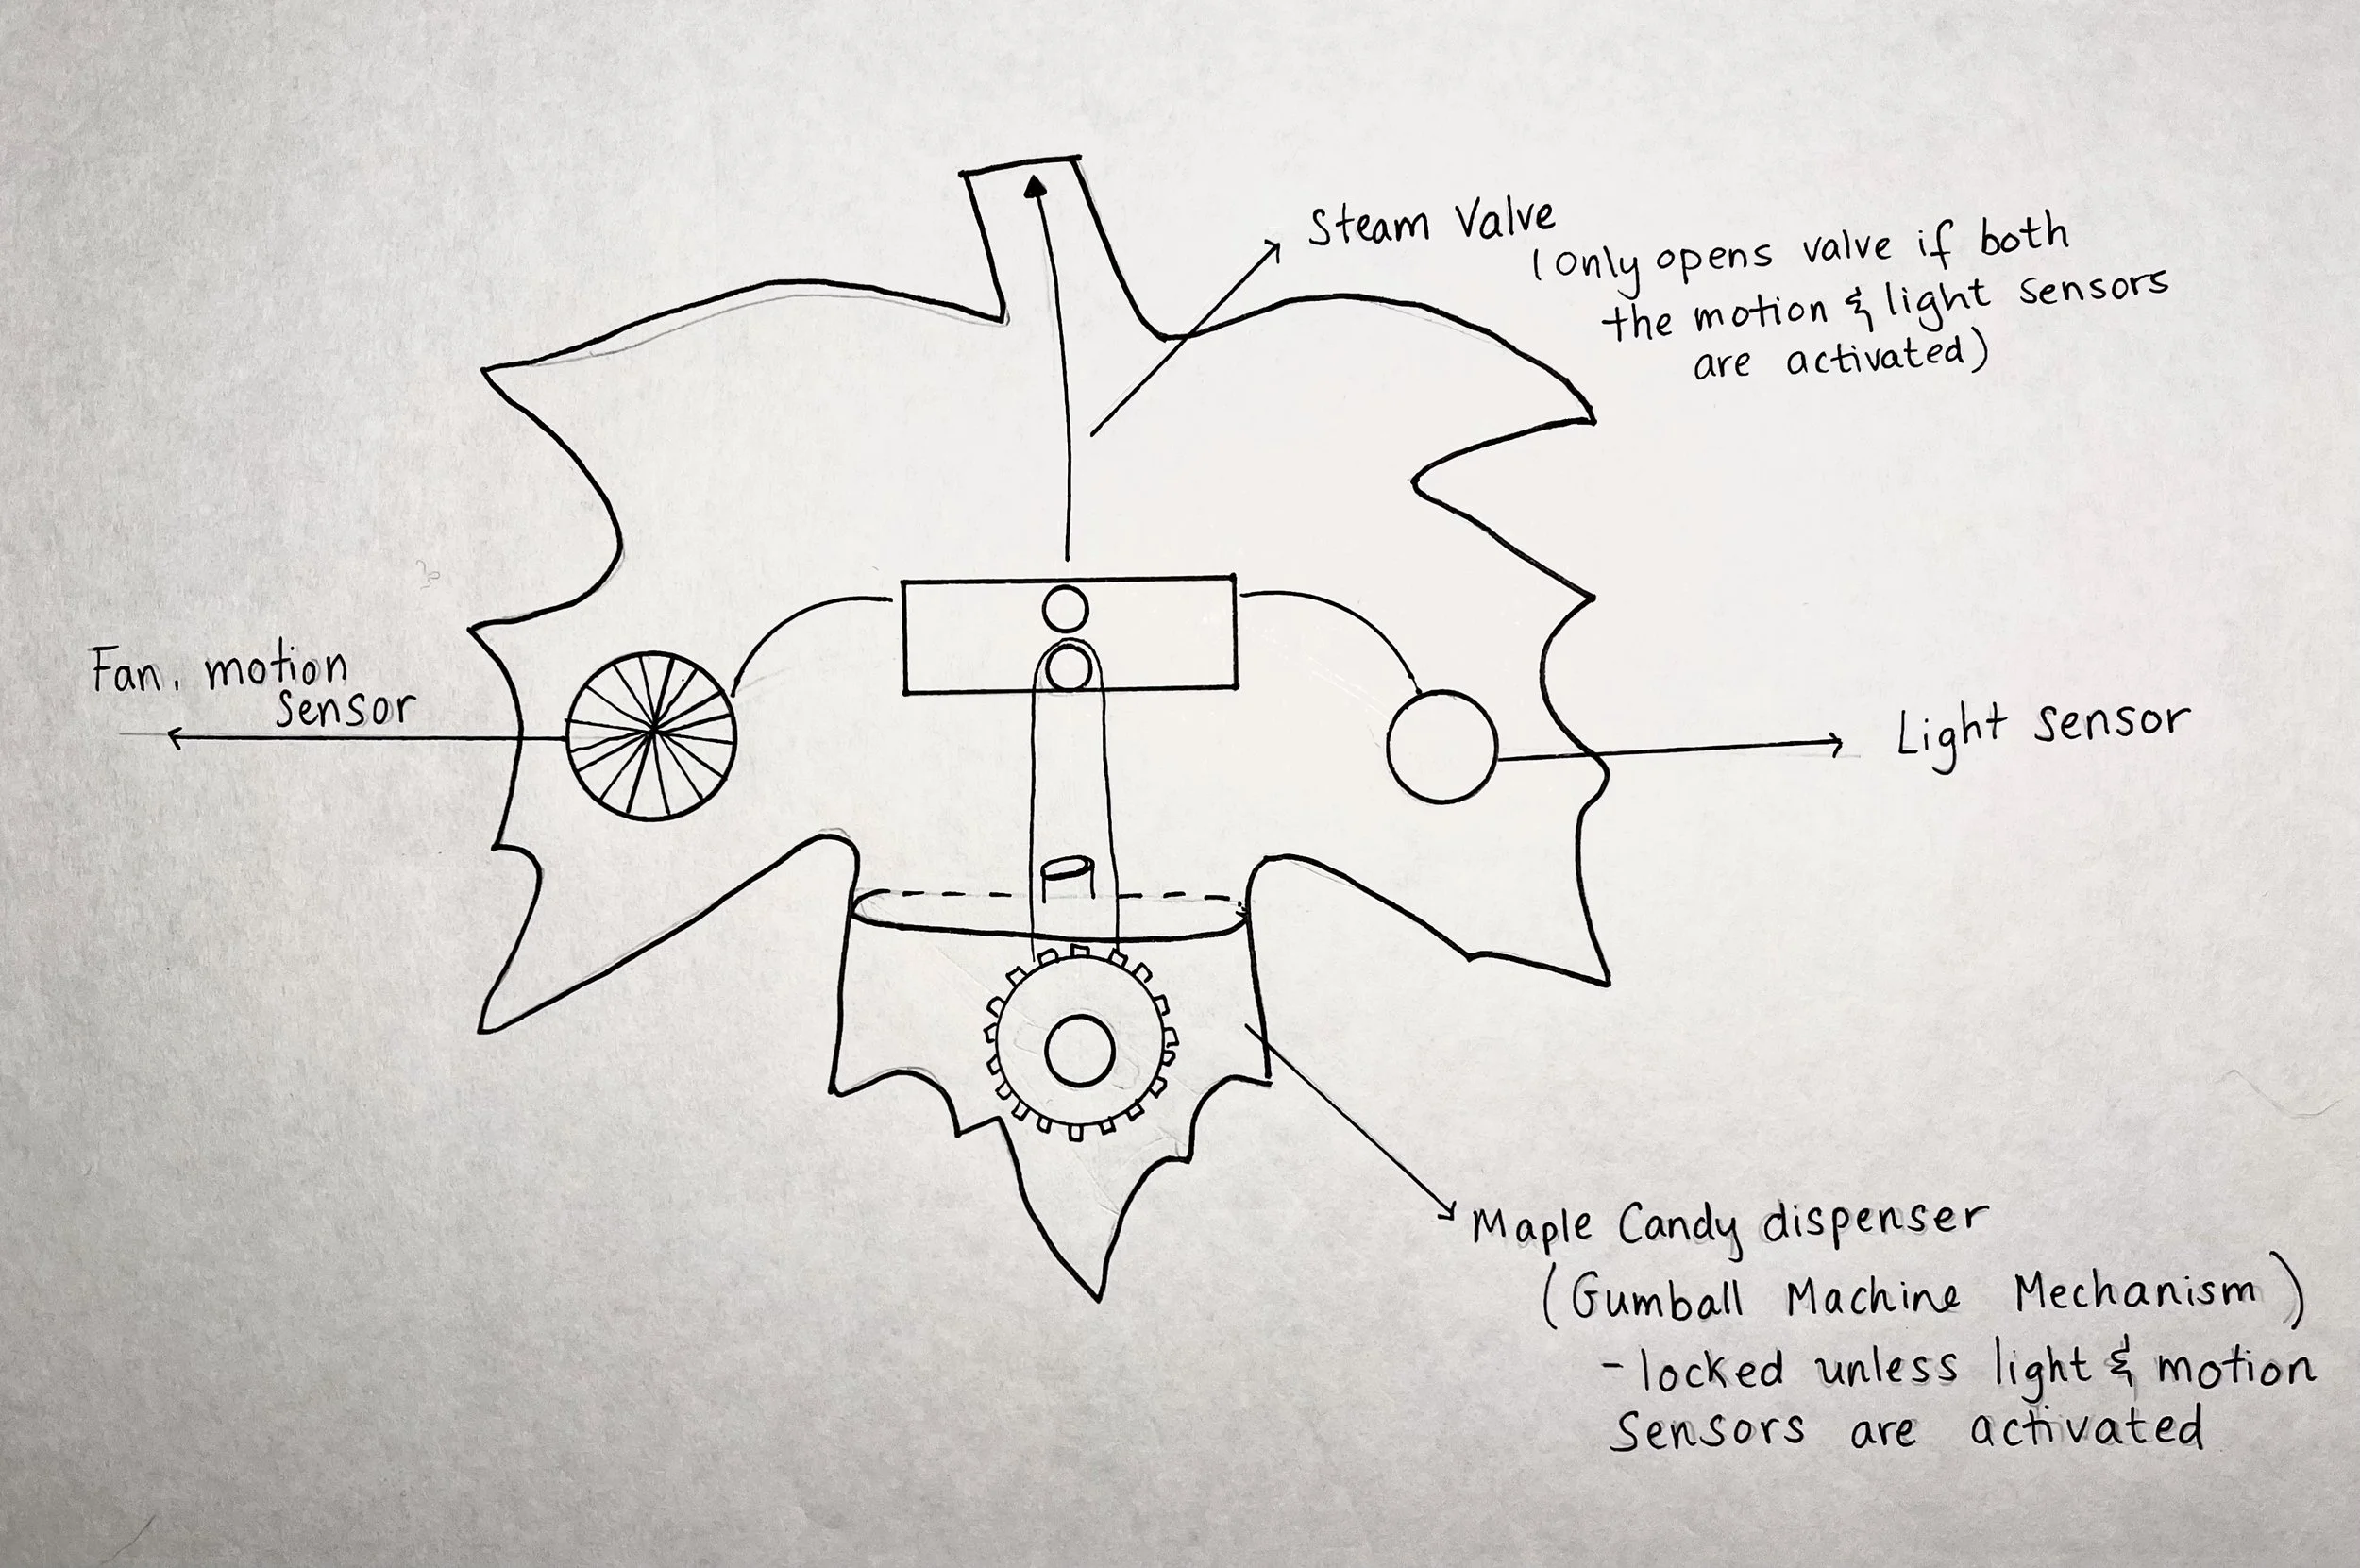 Steam Valve
(Only opens valve if both
the motion & light sensors
are activated)
Fan, motion
Sensor
Light sensor
Maple Candy dispenser
(Gumball Machine Mechanism)
- locked unless light & motion
Sensors are activated